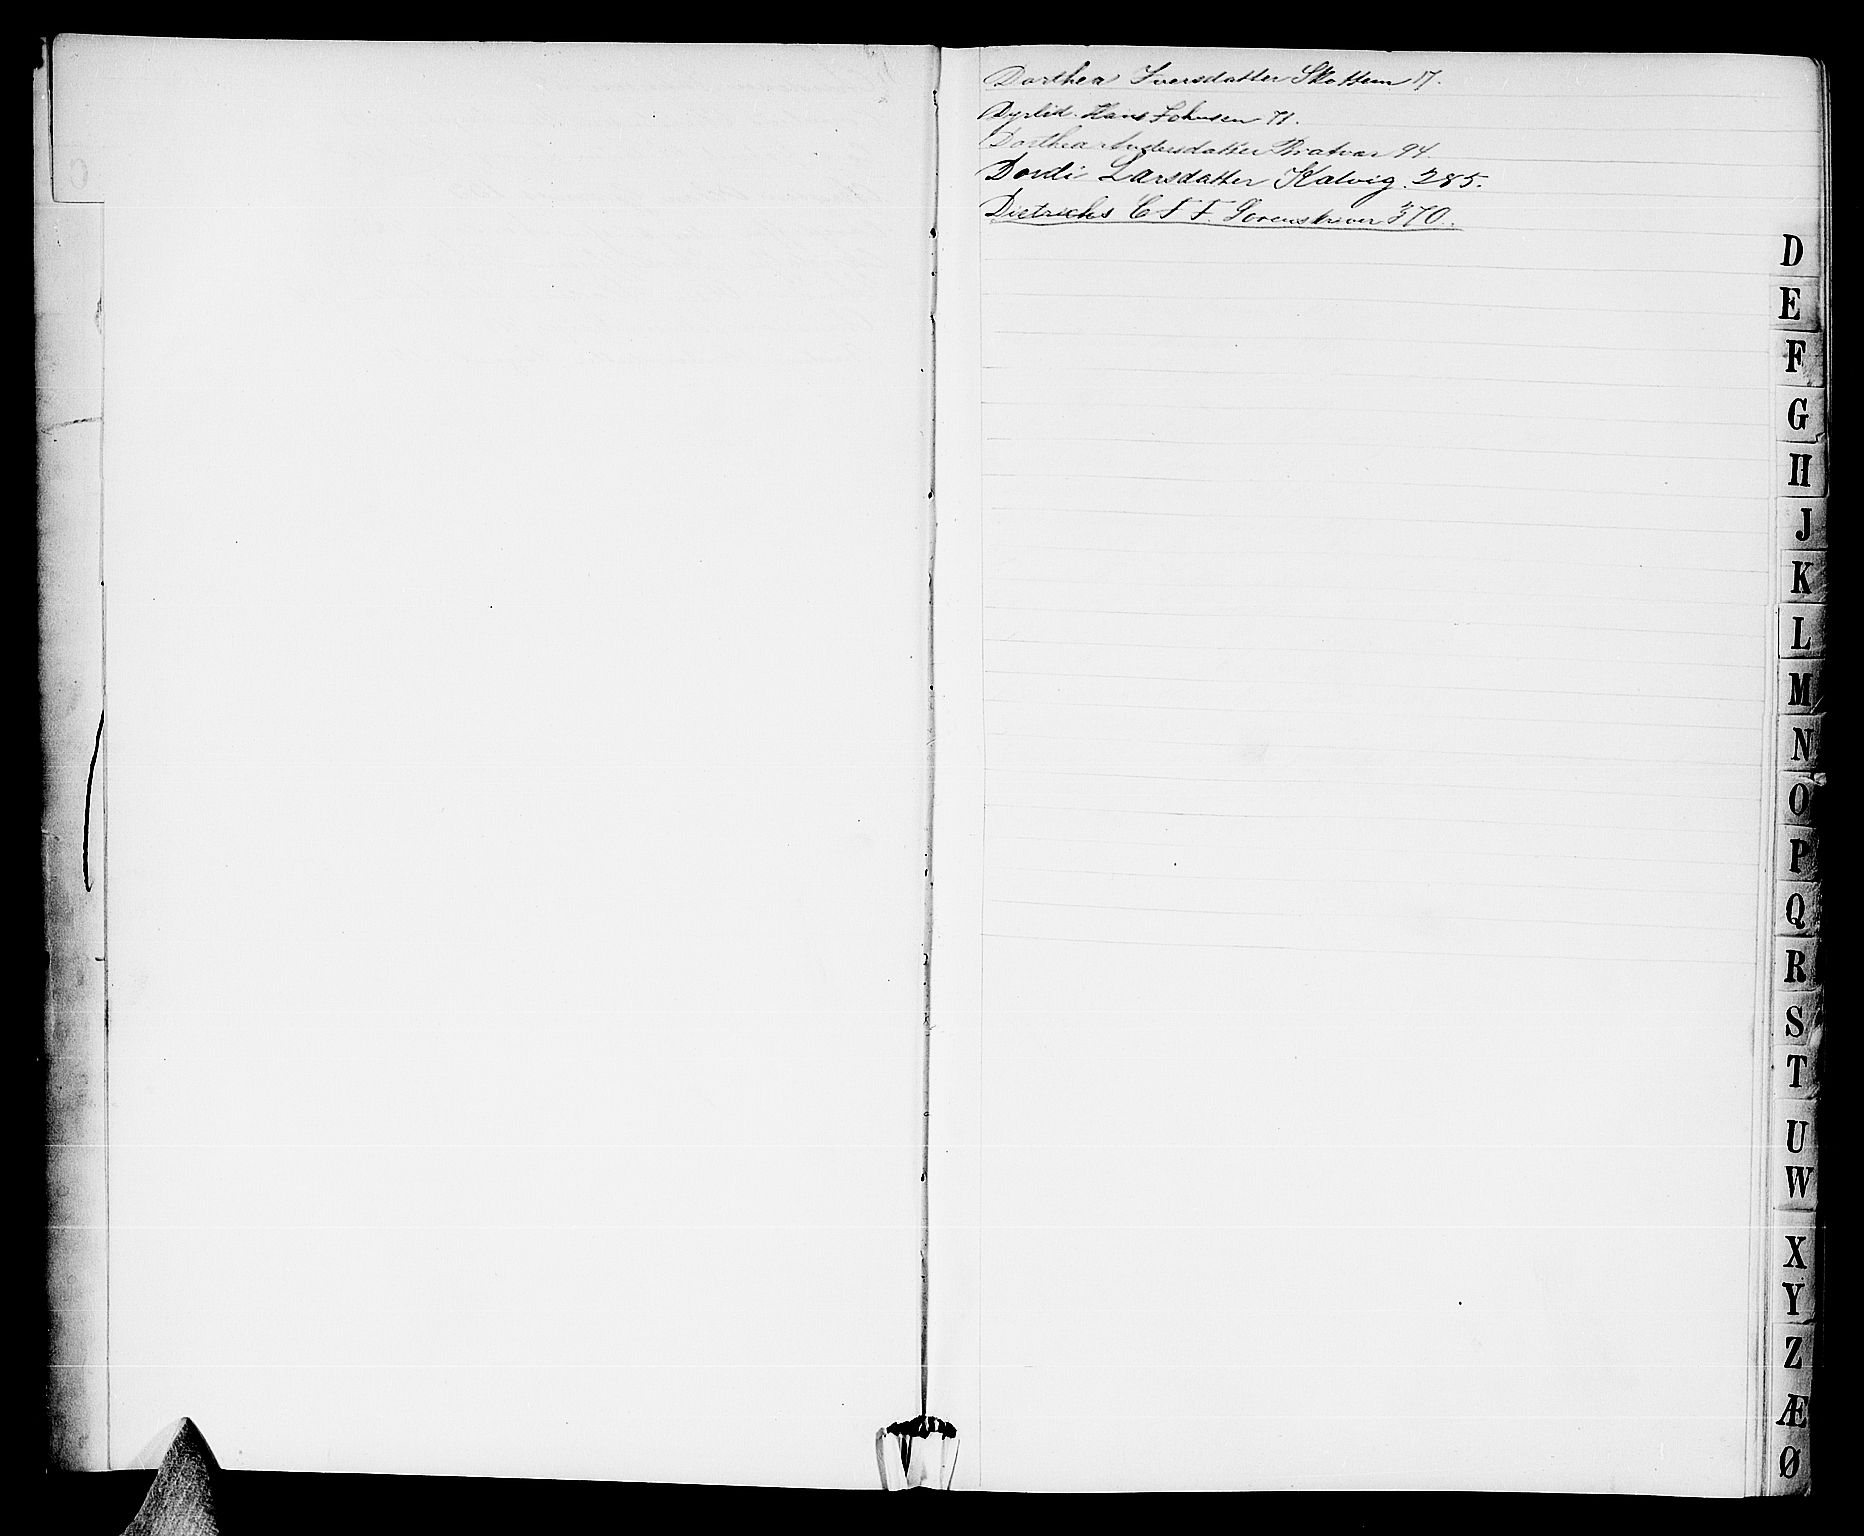 Dorthea Iversdatter Skottem 17.
Dyrlid. Hans Johnsen 71.
Dorthea Andersdatter Kratvær 94.
Dordi Larsdatter Kalvig. 285.
Dietrichs C F F. Sorenskriver 370.
D
E
F
G
H
J
K
L
M
N
O
P
Q
R
S
T
U
W
X
Y
Z
Æ
Ø